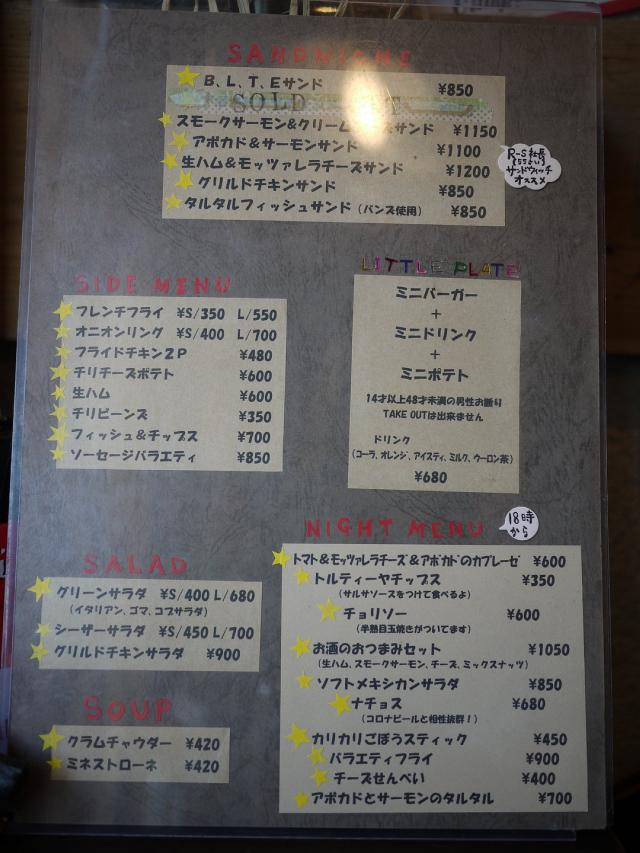 SANDWICHE
B、L、T、Eサンド ¥850
SOLD
スモークサーモン&クリーム サンド ¥1150
アボカド&サーモンサンド ¥1100
生ハム&モッツァレラチーズサンド ¥1200
グリルドチキンサンド ¥850
タルタルフィッシュサンド (バンズ使用) ¥850
サンドウィッチ
オススメ
SIDE MENU
フレンチフライ ¥S/350 L/550
オニオンリング ¥S/400 L/700
フライドチキン2P ¥480
チリチーズポテト ¥600
生ハム ¥600
チリビーンズ ¥350
フィッシュ&チップス ¥700
ソーセージバラエティ ¥850
LITTLE PLATE
ミニバーガー
+
ミニドリンク
+
ミニポテト
14才以上48才未満の男性お断り
TAKE OUTは出来ません
ドリンク
(コーラ、オレンジ、アイスティ、ミルク、ウーロン茶)
¥680
SALAD
グリーンサラダ ¥S/400 L/680
(イタリアン、ゴマ、コブサラダ)
シーザーサラダ ¥S/450 L/700
グリルドチキンサラダ ¥900
SOUP
クラムチャウダー ¥420
ミネストローネ ¥420
NIGHT MENU
18時
から
トマト&モッツァレラチーズ&アボカドのカプレーゼ ¥600
トルティーヤチップス ¥350
(サルサソースをつけて食べるよ)
チョリソー ¥600
(半熟目玉焼きがついてます)
お酒のおつまみセット ¥1050
(生ハム、スモークサーモン、チーズ、ミックスナッツ)
ソフトメキシカンサラダ ¥850
ナチョス ¥680
(コロナビールと相性抜群!)
カリカリごぼうスティック ¥450
バラエティフライ ¥900
チーズせんべい ¥400
アボカドとサーモンのタルタル ¥700